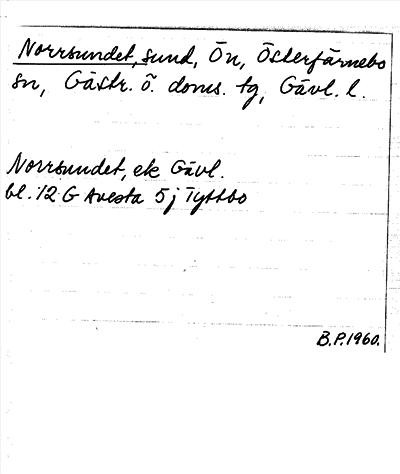 Norrsundet, sund, Ön, Österfärnebo
sn, Gästr. ö. doms. tg, Gävl. l.
Norrsundet, ek Gävl.
bl. 12 G Avesta 5 j Tyttbo
B.P. 1960.